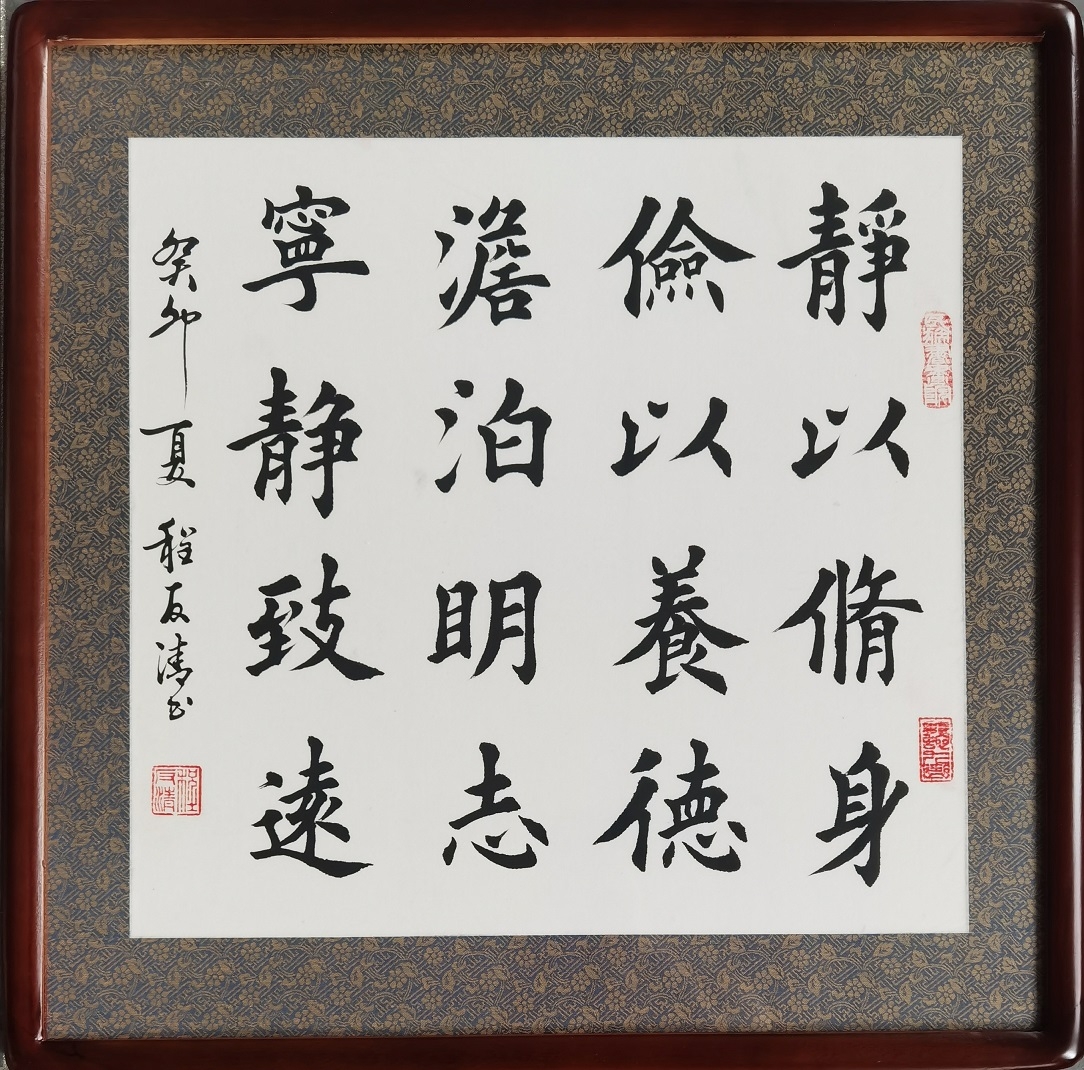 靜以脩身
儉以養德
澹泊明志
寧静致遠
癸卯夏程友清书
程友清